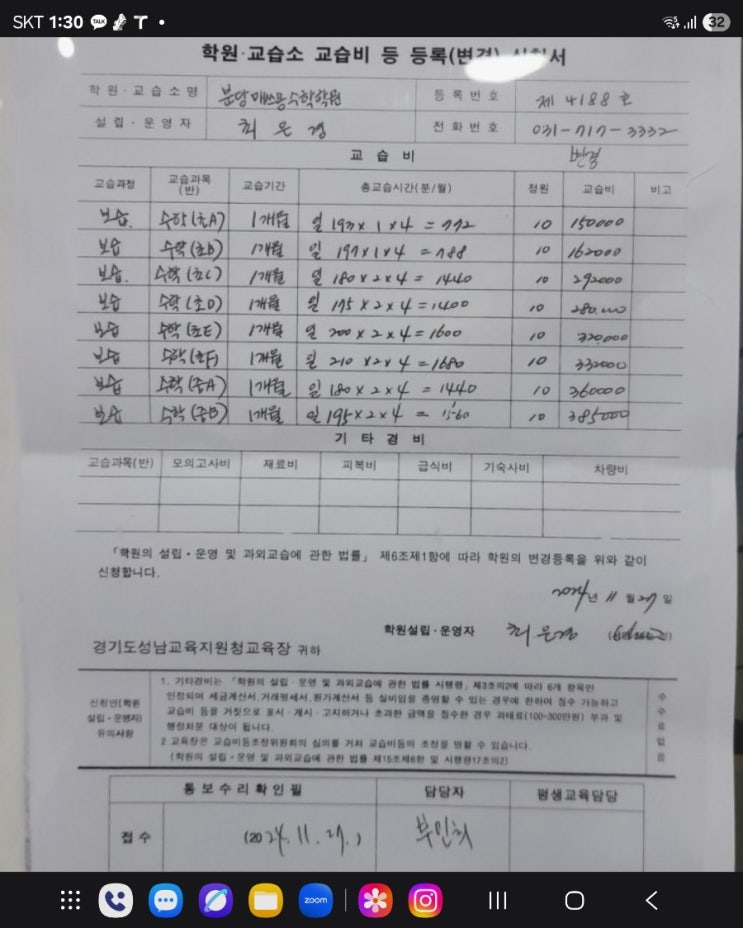 SKT 1:30 TALK T • 32
학원·교습소 교습비 등 등록(변경) 신청서
학원·교습소명 분당매쓰몽수학학원 등록번호 제 4188 호
설립·운영자 최은경 전화번호 031-717-3332
교습비 변경
교습과정 교습과목(반) 교습기간 총교습시간(분/월) 정원 교습비 비고
보습. 수학(초A) 1개월 일 193 x 1 x 4 = 772 10 150000
보습 수학(초B) 1개월 일 197 x 1 x 4 = 788 10 162000
보습. 수학(초C) 1개월 일 180 x 2 x 4 = 1440 10 292000
보습 수학(초D) 1개월 일 175 x 2 x 4 = 1400 10 280,000
보습 수학(초E) 1개월 일 200 x 2 x 4 = 1600 10 320,000
보습 수학(초F) 1개월 일 210 x 2 x 4 = 1680 10 332000
보습 수학(중A) 1개월 일 180 x 2 x 4 = 1440 10 360000
보습 수학(중B) 1개월 일 195 x 2 x 4 = 1560 10 385000
기타경비
교습과목(반) 모의고사비 재료비 피복비 급식비 기숙사비 차량비
「학원의 설립·운영 및 과외교습에 관한 법률」 제6조제1항에 따라 학원의 변경등록을 위와 같이
신청합니다.
2024년 11월 27일
학원설립·운영자 최은경
경기도성남교육지원청교육장 귀하
신청인(학원설립·운영자) 유의사항
1. 기타경비는 「학원의 설립·운영 및 과외교습에 관한 법률 시행령」제3조의2에 따라 6개 항목만
인정되며 세금계산서,거래명세서,원가계산서 등 실비임을 증명할 수 있는 경우에 한하여 징수 가능하고
교습비 등을 거짓으로 표시·게시·고지하거나 초과한 금액을 징수한 경우 과태료(100~300만원) 부과 및
행정처분 대상이 됩니다.
2.교육장은 교습비등조정위원회의 심의를 거쳐 교습비등의 조정을 명할 수 있습니다.
(학원의 설립·운영 및 과외교습에 관한 법률 제15조제6항 및 시행령17조의2)
수수료없음
통보수리확인필 담당자 평생교육담당
접수 (2024.11.27.)
zoom